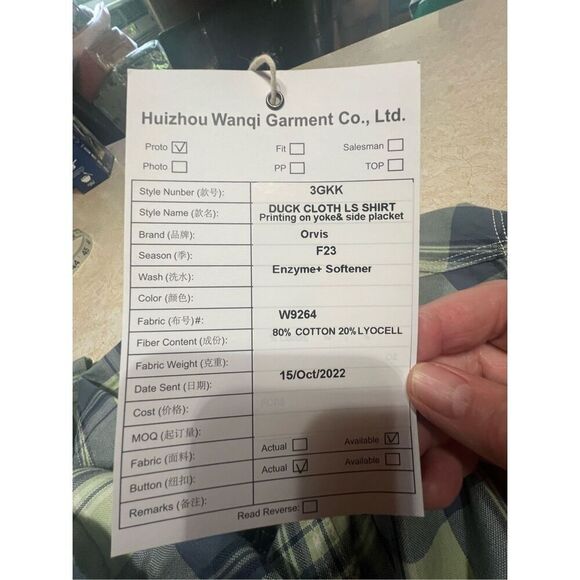 Huizhou Wanqi Garment Co., Ltd.
Proto ☑ Fit ☐ Salesman ☐
Photo ☐ PP ☐ TOP ☐
Style Nunber (款号): 3GKK
Style Name (款名): DUCK CLOTH LS SHIRT
Printing on yoke& side placket
Brand (品牌): Orvis
Season (季): F23
Wash (洗水): Enzyme+ Softener
Color (颜色):
Fabric (布号)#: W9264
Fiber Content (成份): 80% COTTON 20%LYOCELL
Fabric Weight (克重):
Date Sent (日期): 15/Oct/2022
Cost (价格):
MOQ (起订量):
Fabric (面料): Actual ☐ Available ☑
Button (纽扣): Actual ☑ Available ☐
Remarks (备注):
Read Reverse: ☐